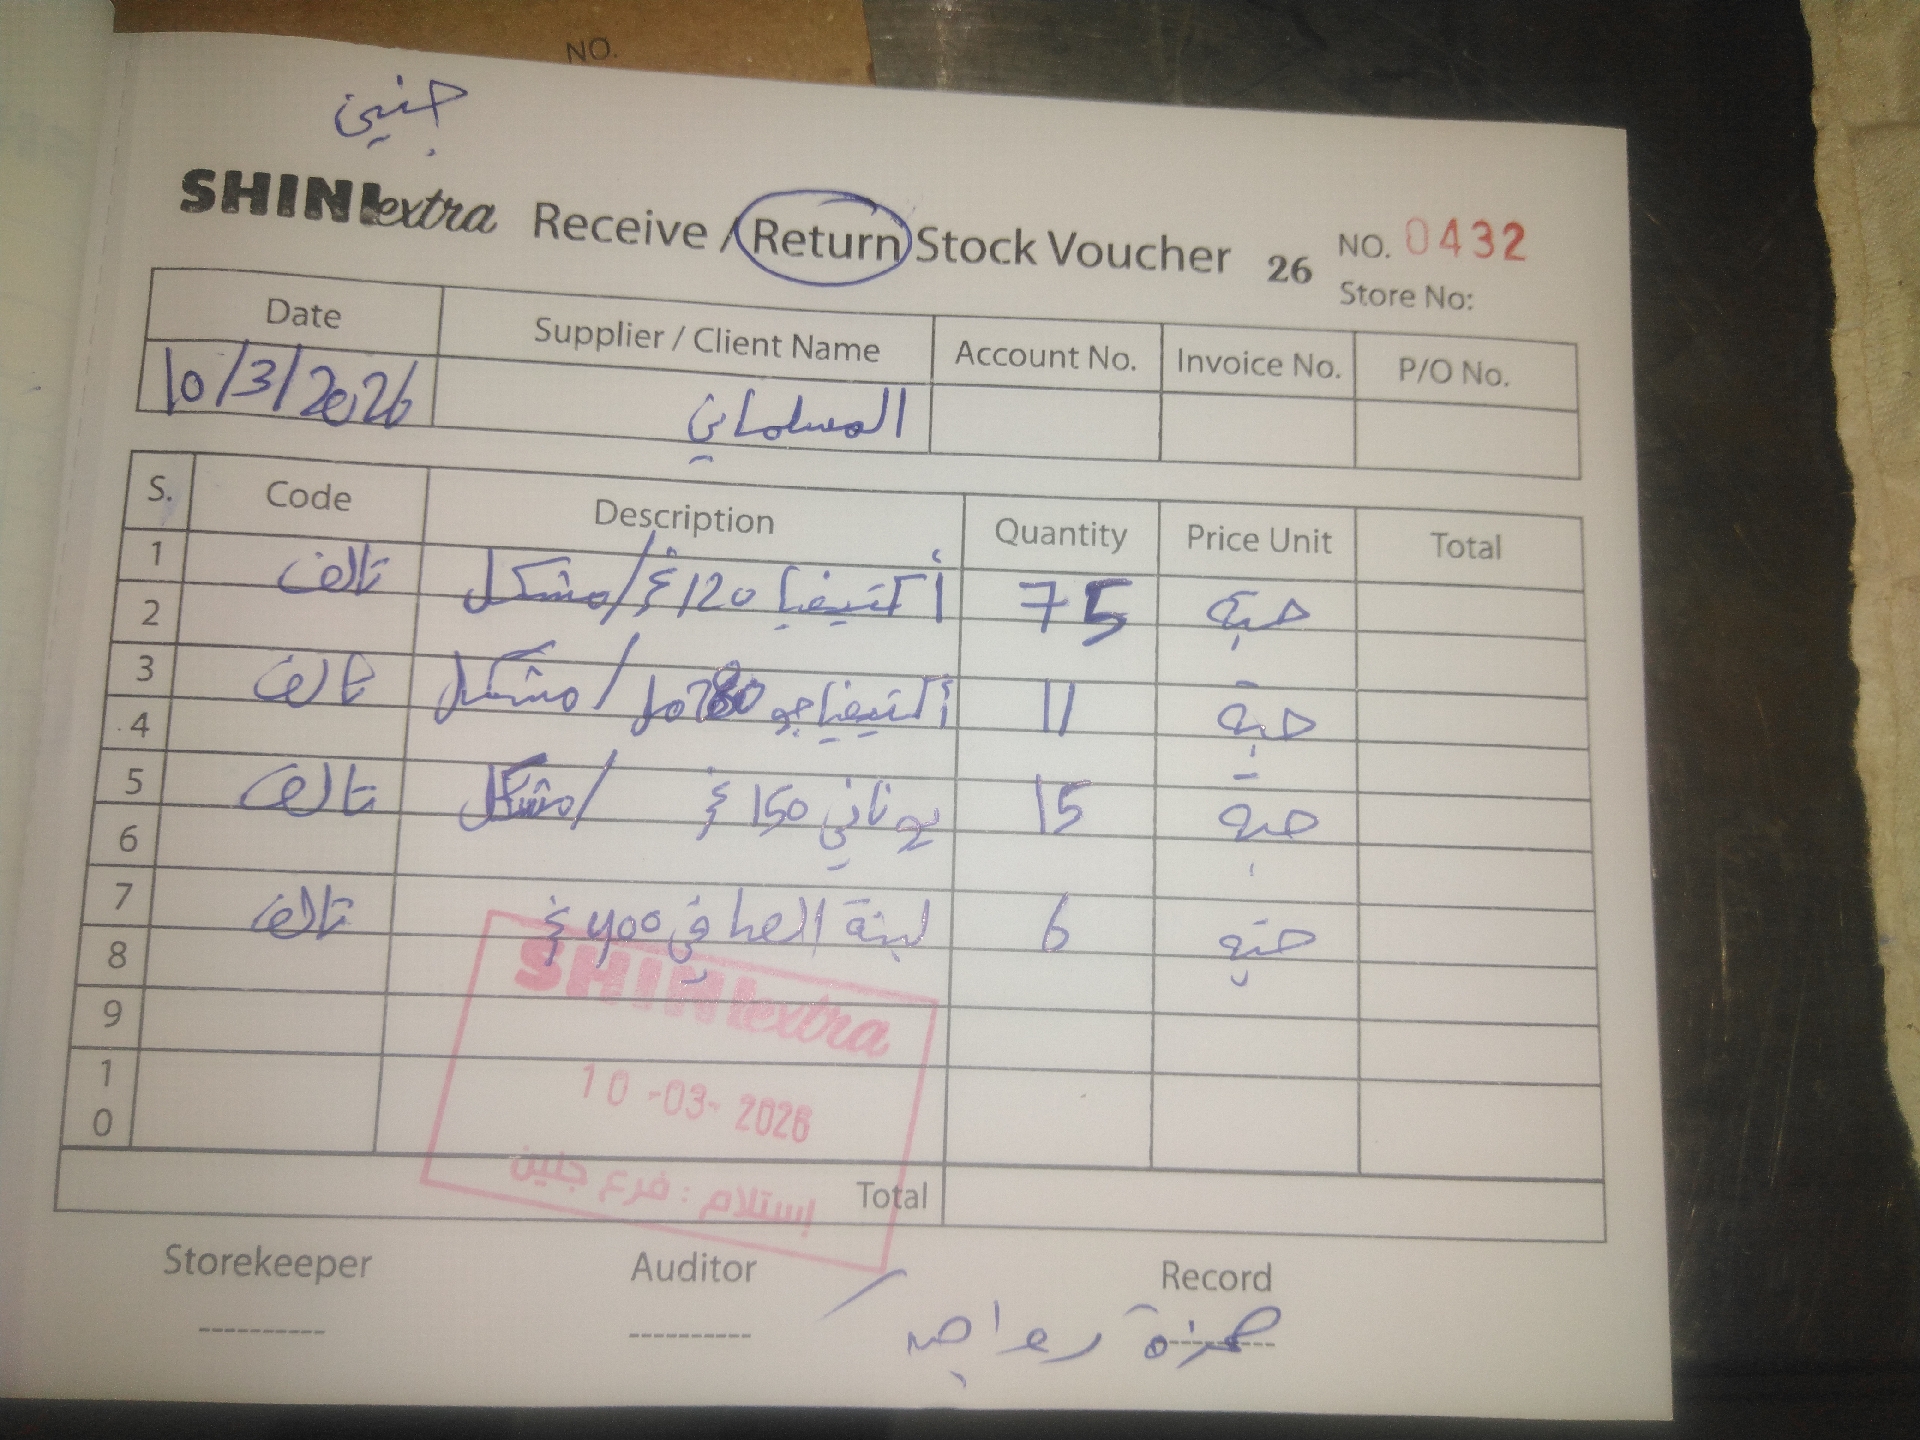 NO.
جنين
SHINI extra Receive / Return Stock Voucher 26 NO. 0432
Store No:
Date Supplier / Client Name Account No. Invoice No. P/O No.
10/3/2026 المسلماني
S. Code Description Quantity Price Unit Total
1 تالف أكتيفيا 120غ/مشكل 75 حبة
2
3 تالف أكتيفيا جو 280مل/مشكل 11 حبة
4
5 تالف يوناني 150غ/مشكل 15 حبة
6
7 تالف لبنة الصافي 400غ 6 حبة
8
9
10
SHINI extra
10 -03- 2026
إستلام : فرع جنين
Total
Storekeeper Auditor Record
حمزة